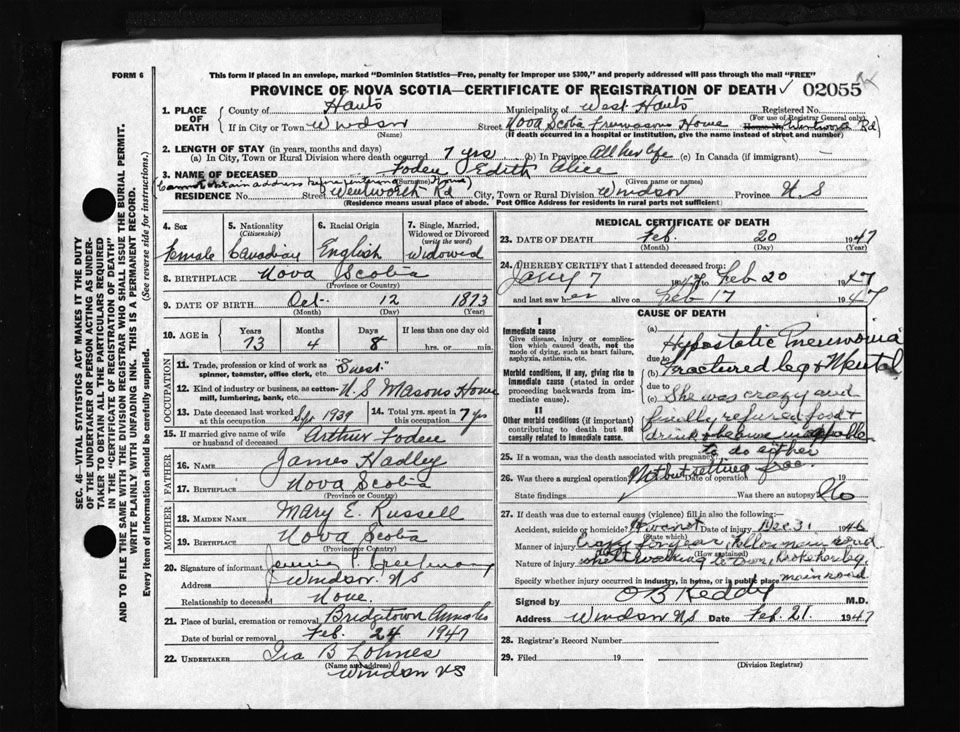 FORM 6
This form if placed in an envelope, marked "Dominion Statistics—Free, penalty for improper use $300," and properly addressed will pass through the mail "FREE"
PROVINCE OF NOVA SCOTIA—CERTIFICATE OF REGISTRATION OF DEATH 02055
1. PLACE OF DEATH
County of Hants Municipality of West Hants Registered No.
(For use of Registrar General only)
If in City or Town Windsor Street Nova Scotia Freemasons Home House No. (Wentworth Rd)
(Name) (If death occurred in a hospital or institution, give the name instead of street and number)
2. LENGTH OF STAY (in years, months and days)
(a) In City, Town or Rural Division where death occurred 7 yrs (b) In Province All her life (c) In Canada (if immigrant)
3. NAME OF DECEASED Edith Alice
(Surname) (Given name or names)
RESIDENCE No. Street Wentworth Rd City, Town or Rural Division Windsor Province N S
(Residence means usual place of abode. Post Office Address for residents in rural parts not sufficient)
4. Sex Female
5. Nationality (Citizenship) Canadian
6. Racial Origin English
7. Single, Married, Widowed or Divorced (write the word) Widowed
8. BIRTHPLACE Nova Scotia
(Province or Country)
9. DATE OF BIRTH Oct. 12 1873
(Month) (Day) (Year)
10. AGE in Years Months Days If less than one day
73 4 8 hrs. or min.
OCCUPATION
11. Trade, profession or kind of work as spinner, teamster, office clerk, etc. "Guest."
12. Kind of industry or business, as cotton-mill, lumbering, bank, etc. N S Masons Home
13. Date deceased last worked at this occupation 1939
14. Total yrs. spent in this occupation 7 yrs
15. If married give name of wife or husband of deceased Arthur
FATHER
16. NAME James Hadley
17. BIRTHPLACE Nova Scotia
(Province or Country)
MOTHER
18. MAIDEN NAME Mary E. Russell
19. BIRTHPLACE Nova Scotia
(Province or Country)
20. Signature of informant
Address Windsor. NS
Relationship to deceased None.
21. Place of burial, cremation or removal Bridgetown
Date of burial or removal Feb. 24 1947
22. UNDERTAKER Ira B Lohnes
(Name and address)
Windsor NS
MEDICAL CERTIFICATE OF DEATH
23. DATE OF DEATH Feb. 20 1947
(Month) (Day) (Year)
24. I HEREBY CERTIFY that I attended deceased from:
7 1947 to Feb 20 1947
and last saw her alive on Feb 17 1947
CAUSE OF DEATH
I
Immediate cause
Give disease, injury or complication which caused death, not the mode of dying, such as heart failure, asphyxia, asthenia, etc.
Morbid conditions, if any, giving rise to immediate cause (stated in order proceeding backwards from immediate cause).
II
Other morbid conditions (if important) contributing to death but not causally related to immediate cause.
(a) Hypostatic Pneumonia
due to
(b) Fractured leg & Mental
due to
(c) She was crazy and
finally refused food &
drink & became incapable
to do either
25. If a woman, was the death associated with pregnancy
26. Was there a surgical operation? Not but setting frac. Date of operation 19
State findings Was there an autopsy? No
27. If death was due to external causes (violence) fill in also the following:—
Accident, suicide or homicide? Date of injury Dec. 31 1946
(State which)
Manner of injury Crazy for year, fell on main road
(How sustained)
Nature of injury walking to town, broke her leg.
Specify whether injury occurred in industry, in home, or in public place main road.
Signed by O B Keddy M.D.
Address Windsor NS Date Feb. 21. 1947
28. Registrar's Record Number
29. Filed 19
(Division Registrar)
SEC. 46—VITAL STATISTICS ACT MAKES IT THE DUTY
OF THE UNDERTAKER OR PERSON ACTING AS UNDER-
TAKER TO OBTAIN ALL THE PARTICULARS REQUIRED
IN THE "CERTIFICATE OF REGISTRATION OF DEATH"
AND TO FILE THE SAME WITH THE DIVISION REGISTRAR WHO SHALL ISSUE THE BURIAL PERMIT.
WRITE PLAINLY WITH UNFADING INK. THIS IS A PERMANENT RECORD.
Every item of information should be carefully supplied. (See reverse side for instructions.)